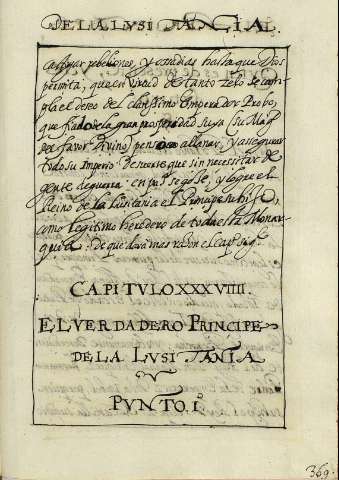 DE LA LUSITANIA.
castigar rebeliones, y osadias hasta que Dios
permita, que en virtud de tanto zelo se cum-
pla el deseo del clarissimo Emperador Probo,
que fiado en la gran prosperidad suya (su Mag.d
por favor divino) pensava allanar, y assegurar
todo su Imperio: de suerte que sin necessitar de
gente de guerra: en paz se goze, y logre el
Reino de la lusitania el Principe su hijo,
como legitimo heredero de toda esta Monar-
quia. De que dara mas razon el cap.o sig.e
CAPITULO XXXVIIII.
EL VERDADERO PRINCIPE
DE LA LUSITANIA
PUNTO. I.o
369.